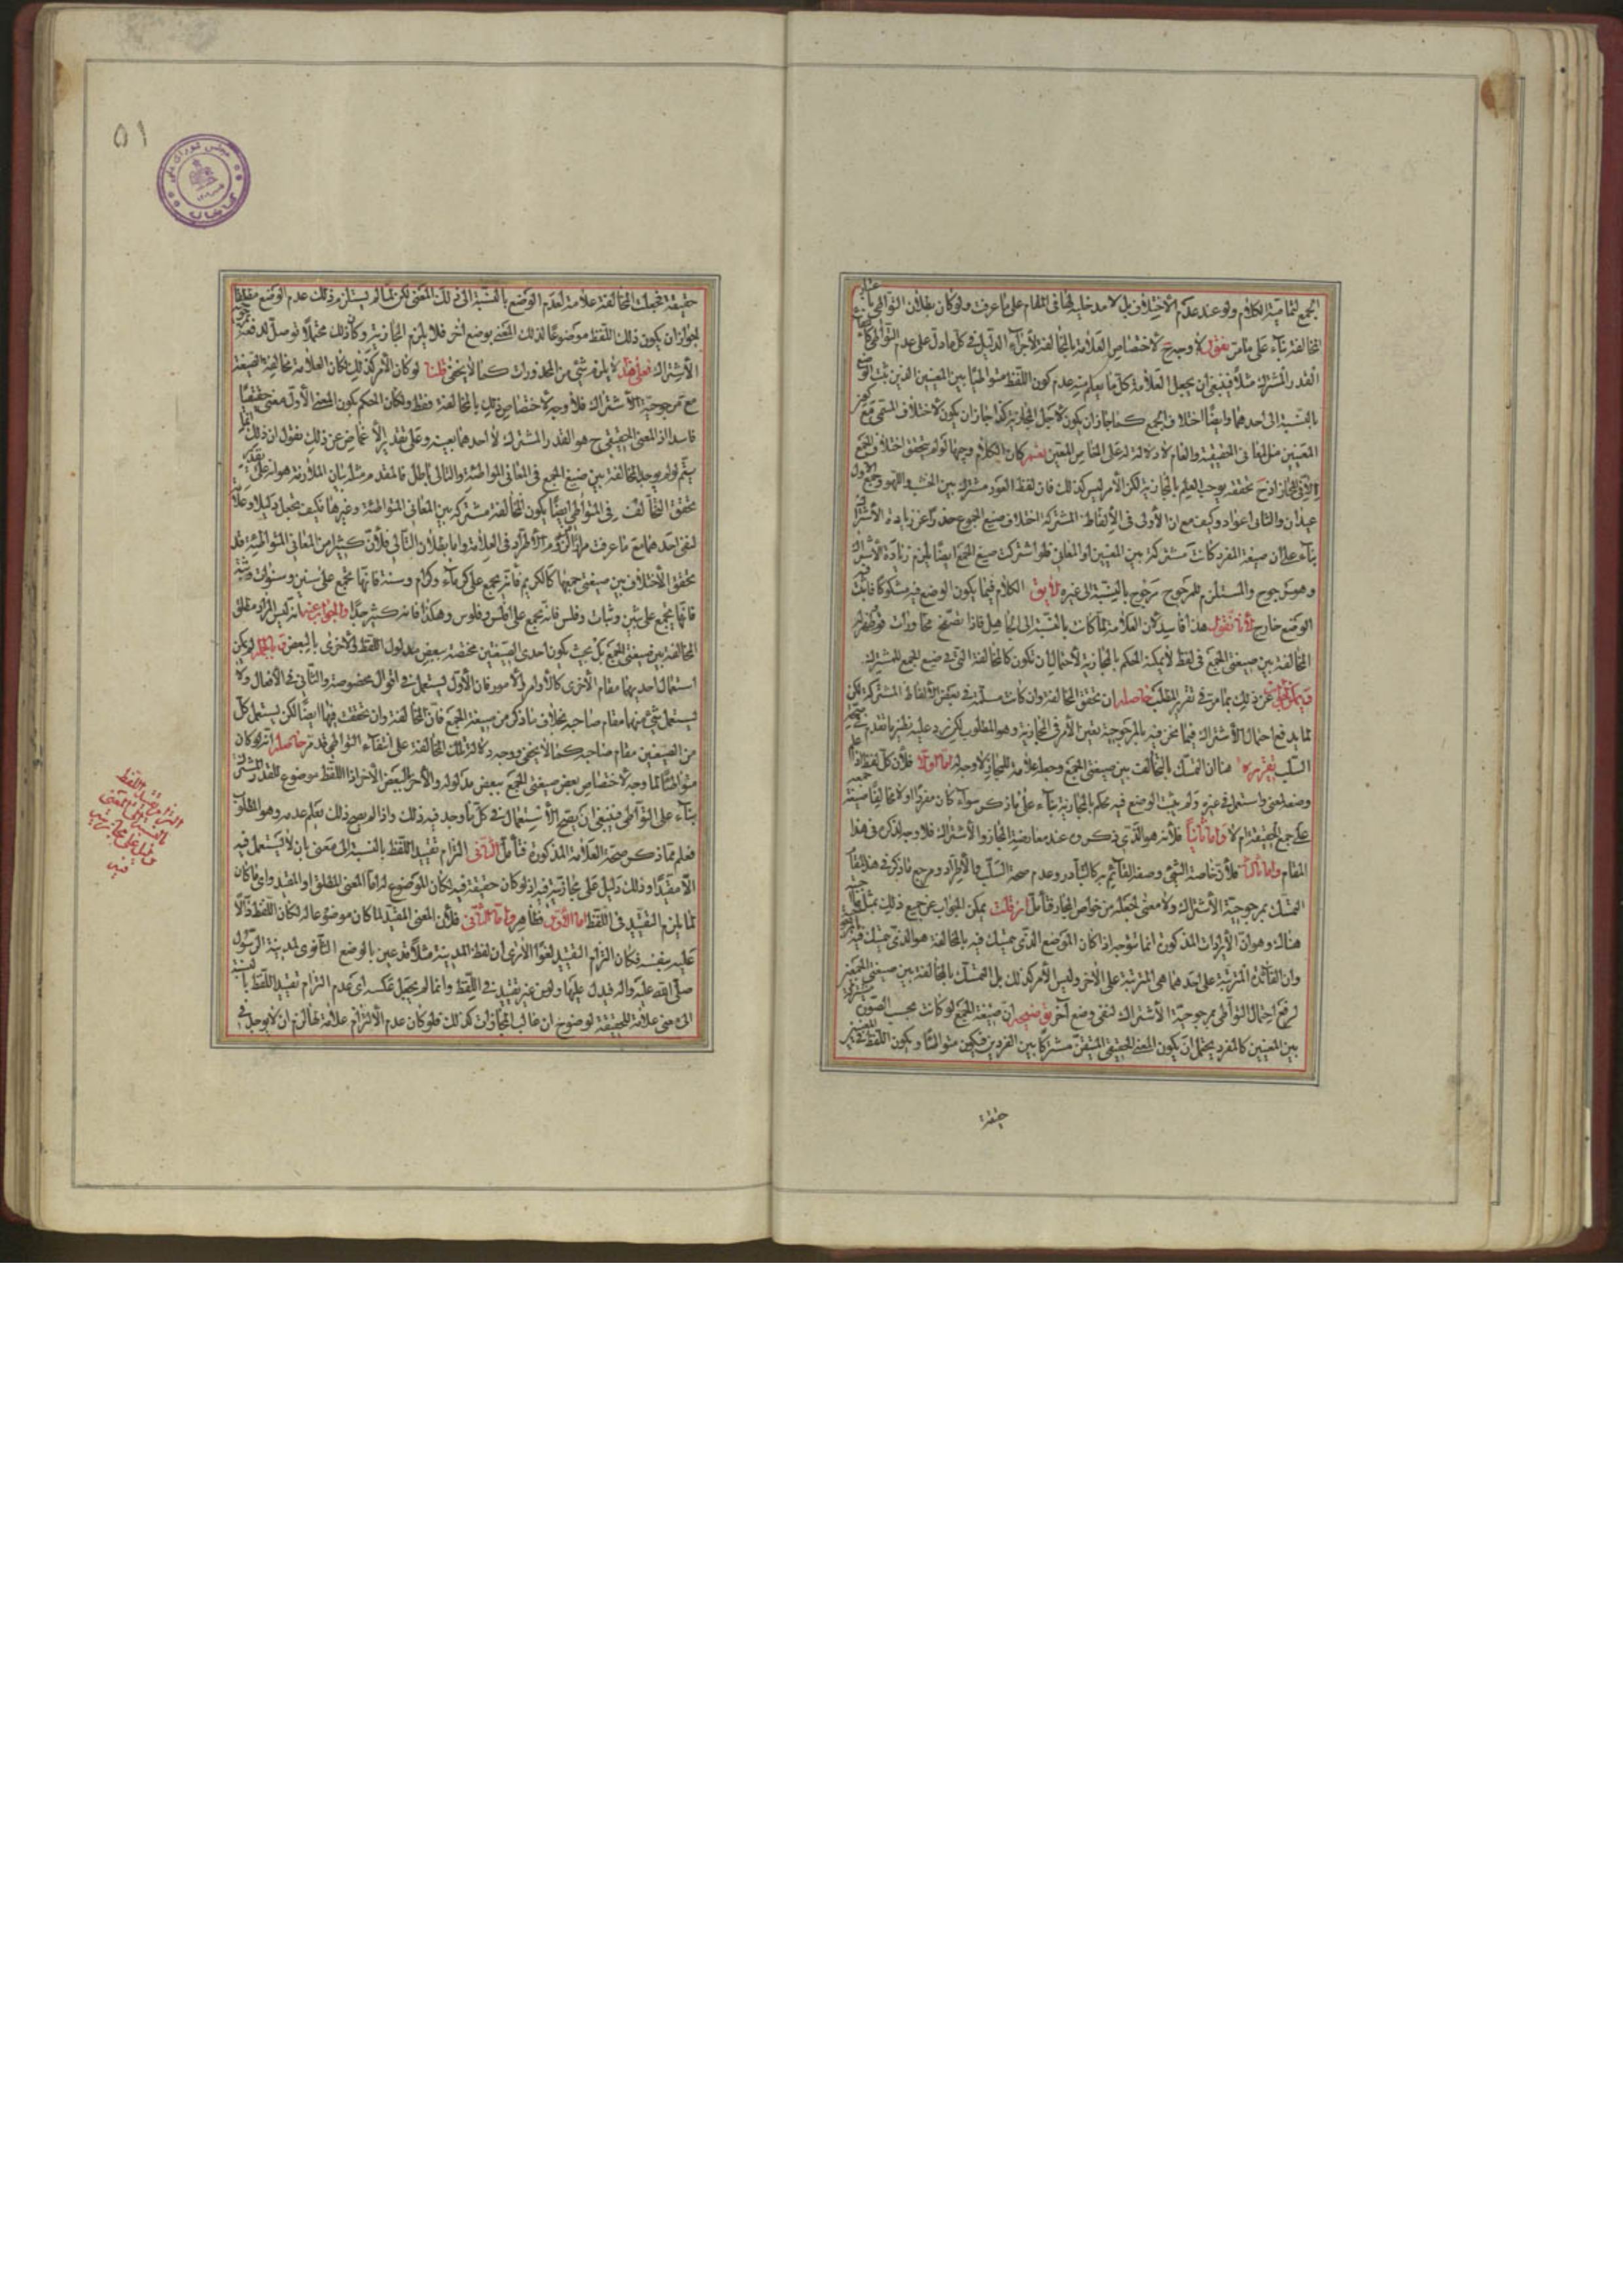 الجمع لتمامية الكلام ولو عند عدم الاختلاف بل لا مدخلية لها في المقام على ما عرفت ولو كان بطلان التواطي باعتبار
المخالفة بناء على ما مر نقول لا وجه ح لاختصاص العلامة بالمخالفة لاجراء الدليل في كل ما دل على عدم التواطي
القدر المشترك مثلا فينبغي ان يجعل العلامة كل ما يعلم منه عدم كون اللفظ متواطيا بين المعنيين الذين ثبت الوضع
بالنسبة الى احدهما وايضا اختلاف الجمع كما جاز ان يكون لاجل المجازية كذا جاز ان يكون لاختلاف المسمى مع
المعنيين مثل المعاني الحقيقية والعام لا دلالة له على الخاص المعين نعم كان الكلام وجها لو لم يتحقق اختلاف الجمع
الا في المجاز اذ ح تحققه يوجب العلم بالمجازية لكن الامر ليس كذلك فان لفظ العود مشترك بين الخشب واللهو وجمع الاول
عيدان والثاني اعواد وكيف مع ان الاولى في الالفاظ المشتركة اختلاف صيغ الجموع حذرا عن زيادة الاشتراك
بناء على ان صيغة المفرد كانت مشتركة بين المعنيين او المعاني فلو اشتركت صيغ الجمع ايضا لزم زيادة الاشتراك
وهو مرجوح والمستلزم للمرجوح مرجوح بالنسبة الى غيره لا يق الكلام فيما يكون الوضع فيه مشكوكا فما ثبت فيه
الوضع خارج لانا نقول هذا فاسد لان العلامة لما كانت بالنسبة الى الجاهل فاذا تصفح محاورات قوم فظهر له
المخالفة بين صيغتي الجمع في لفظ لا يمكنه الحكم بالمجازية لاحتمال ان تكون كالمخالفة التي في صيغ الجمع للمشترك
ويمكن الجواب عن ذلك بما مر في تقرير المطلب حاصله ان تحقق المخالفة وان كانت مسلمة في بعض الالفاظ المشتركة لكن
لما يدفع احتمال الاشتراك فيما نحن فيه بالمرجوحية تعين الامر في المجازية وهو المطلوب لكن يرد عليه نظير ما تقدم في صحة
السلب تقريره هنا ان التمسك بالتخالف بين صيغتي الجمع وجعله علامة للمجاز لا وجه له اما اولا فلان كل لفظ اذا علم
وضعه لمعنى واستعمل في غيره ولم يثبت الوضع فيه يحكم بالمجازية بناء على ما ذكر سواء كان مفردا او لا مخالفا صيغة جمعه
على جمع الحقيقة ام لا واما ثانيا فلانه هو الذي ذكروه عند معارضة المجاز والاشتراك فلا وجه لذكره في هذا
المقام واما ثالثا فلان خاصة الشيء وصفه القائم به كالتبادر وعدم صحة السلب والاطراد ومرجع ما ذكر في هذا المقام
التمسك بمرجوحية الاشتراك ولا معنى لجعله من خواص المجاز فتأمل ان قلت يمكن الجواب عن جميع ذلك بمثل ما
هناك وهو ان الايرادات المذكورة انما تتوجه اذا كان الموضع الذي يتمسك فيه بالمخالفة هو الذي يتمسك فيه
وان الفائدة المترتبة على احدهما هي المترتبة على الاخر وليس الامر كذلك بل التمسك بالمخالفة بين صيغتي الجمعين
لرفع احتمال التواطي بمرجوحية الاشتراك لنفي وضع آخر توضيحه ان صيغة الجمع لو كانت بحسب الصورة مشتركة
بين المعنيين كالمفرد يحتمل ان يكون المعنى الحقيقي المتيقن مشتركا بين الفردين فيكون متواطئا ويكون اللفظ في المعنيين
حقيقة
۵۱
مجلس شورای ملی
کتابخانه
حقيقة فجعلت المخالفة علامة لعدم الوضع بالنسبة الى ذلك المعنى لكن لما لم يستلزم ذلك عدم الوضع مطلقا
لجواز ان يكون ذلك اللفظ موضوعا لذلك المعنى بوضع آخر فلا يلزم المجازية وكان ذلك محتملا توصل لدفعه
الاشتراك فعلى هذا لا يلزم شيء من المحذورات كما لا يخفى قلنا لو كان الامر كذلك لكان العلامة مخالفة الصيغة
مع مرجوحية الاشتراك فلا وجه لاختصاص ذلك بالمخالفة فقط ولكان الحكم بكون المعنى الاول معنى حقيقيا
فاسدا اذ المعنى الحقيقي ح هو القدر المشترك لا احدهما بعينه وعلى تقدير الاغماض عن ذلك نقول ان ذلك انما
يتم لو لم يوجد المخالفة بين صيغ الجمع في المعاني المتواطئة والتالي باطل فالمقدم مثله بيان الملازمة هو انه على تقدير
تحقق التخالف في المتواطي ايضا يكون المخالفة مشتركة بين المعاني المتواطئة وغيرها فكيف يجعل دليلا وعلامة
لنفي احدهما مع ما عرفت من الاطراد في العلامة واما بطلان التالي فلان كثيرا من المعاني المتواطئة قد
تحقق الاختلاف بين صيغتي جمعها كالكريم فانه يجمع على كرماء وكرام وسنة فانها تجمع على سنين وسنوات وثبة
فانها يجمع على ثبين وثبات وفلس فانه يجمع على افلس وفلوس وهكذا فانه كثير جدا والجواب عنه انه ليس المراد مطلق
المخالفة بين صيغتي الجمع بل بحيث يكون احدى الصيغتين مختصة ببعض مدلول اللفظ والاخرى بالبعض وبالجملة لم يكن
استعمال احديهما مقام الاخرى كالاوامر والامور فان الاول يستعمل في اقوال مخصوصة والثاني في الافعال ولا
يستعمل شيء منهما مقام صاحبه بخلاف ما ذكر من صيغة الجمع فان المخالفة وان تحققت فيها ايضا لكن يستعمل كل
من الصيغتين مقام صاحبه كما لا يخفى ووجه دلالة تلك المخالفة على انتفاء التواطي قد مر حاصله انه لو كان
متواطئا لما وجه لاختصاص بعض صيغتي الجمع ببعض مدلوله والآخر بالبعض الآخر اذ اللفظ موضوع للقدر المشترك
بناء على التواطي فينبغي ان يصح الاستعمال في كل ما وجد فيه ذلك واذا لم يصح ذلك يعلم عدمه وهو المطلوب
فعلم مما ذكر صحة العلامة المذكورة فتأمل الثاني التزام تقييد اللفظ بالنسبة الى معنى بان لا يستعمل فيه
الا مقيدا وذلك دليل على مجازيته فيه اذ لو كان حقيقة فيه لكان الموضوع له اما المعنى المطلق او المقيد واي ما كان
لما يلزم التقييد في اللفظ اما الاول فظاهر واما الثاني فلان المعنى المقيد لما كان موضوعا له لكان اللفظ دالا
عليه بنفسه فكان التزام التقييد لغوا الا ترى ان لفظ المدينة مثلا قد عين بالوضع الثانوي لمدينة الرسول
صلى الله عليه وآله فيدل عليها ولو من غير تقييد في اللفظ وانما لم يجعل عكسه اي عدم التزام تقييد اللفظ بالنسبة
الى معنى علامة للحقيقة لوضوح ان غالب المجازات كذلك فلو كان عدم الالتزام علامة لها لزم ان لا يوجد في
التزام تقييد اللفظ
بالنسبة الى المعنى
دليل على مجازيته
فيه